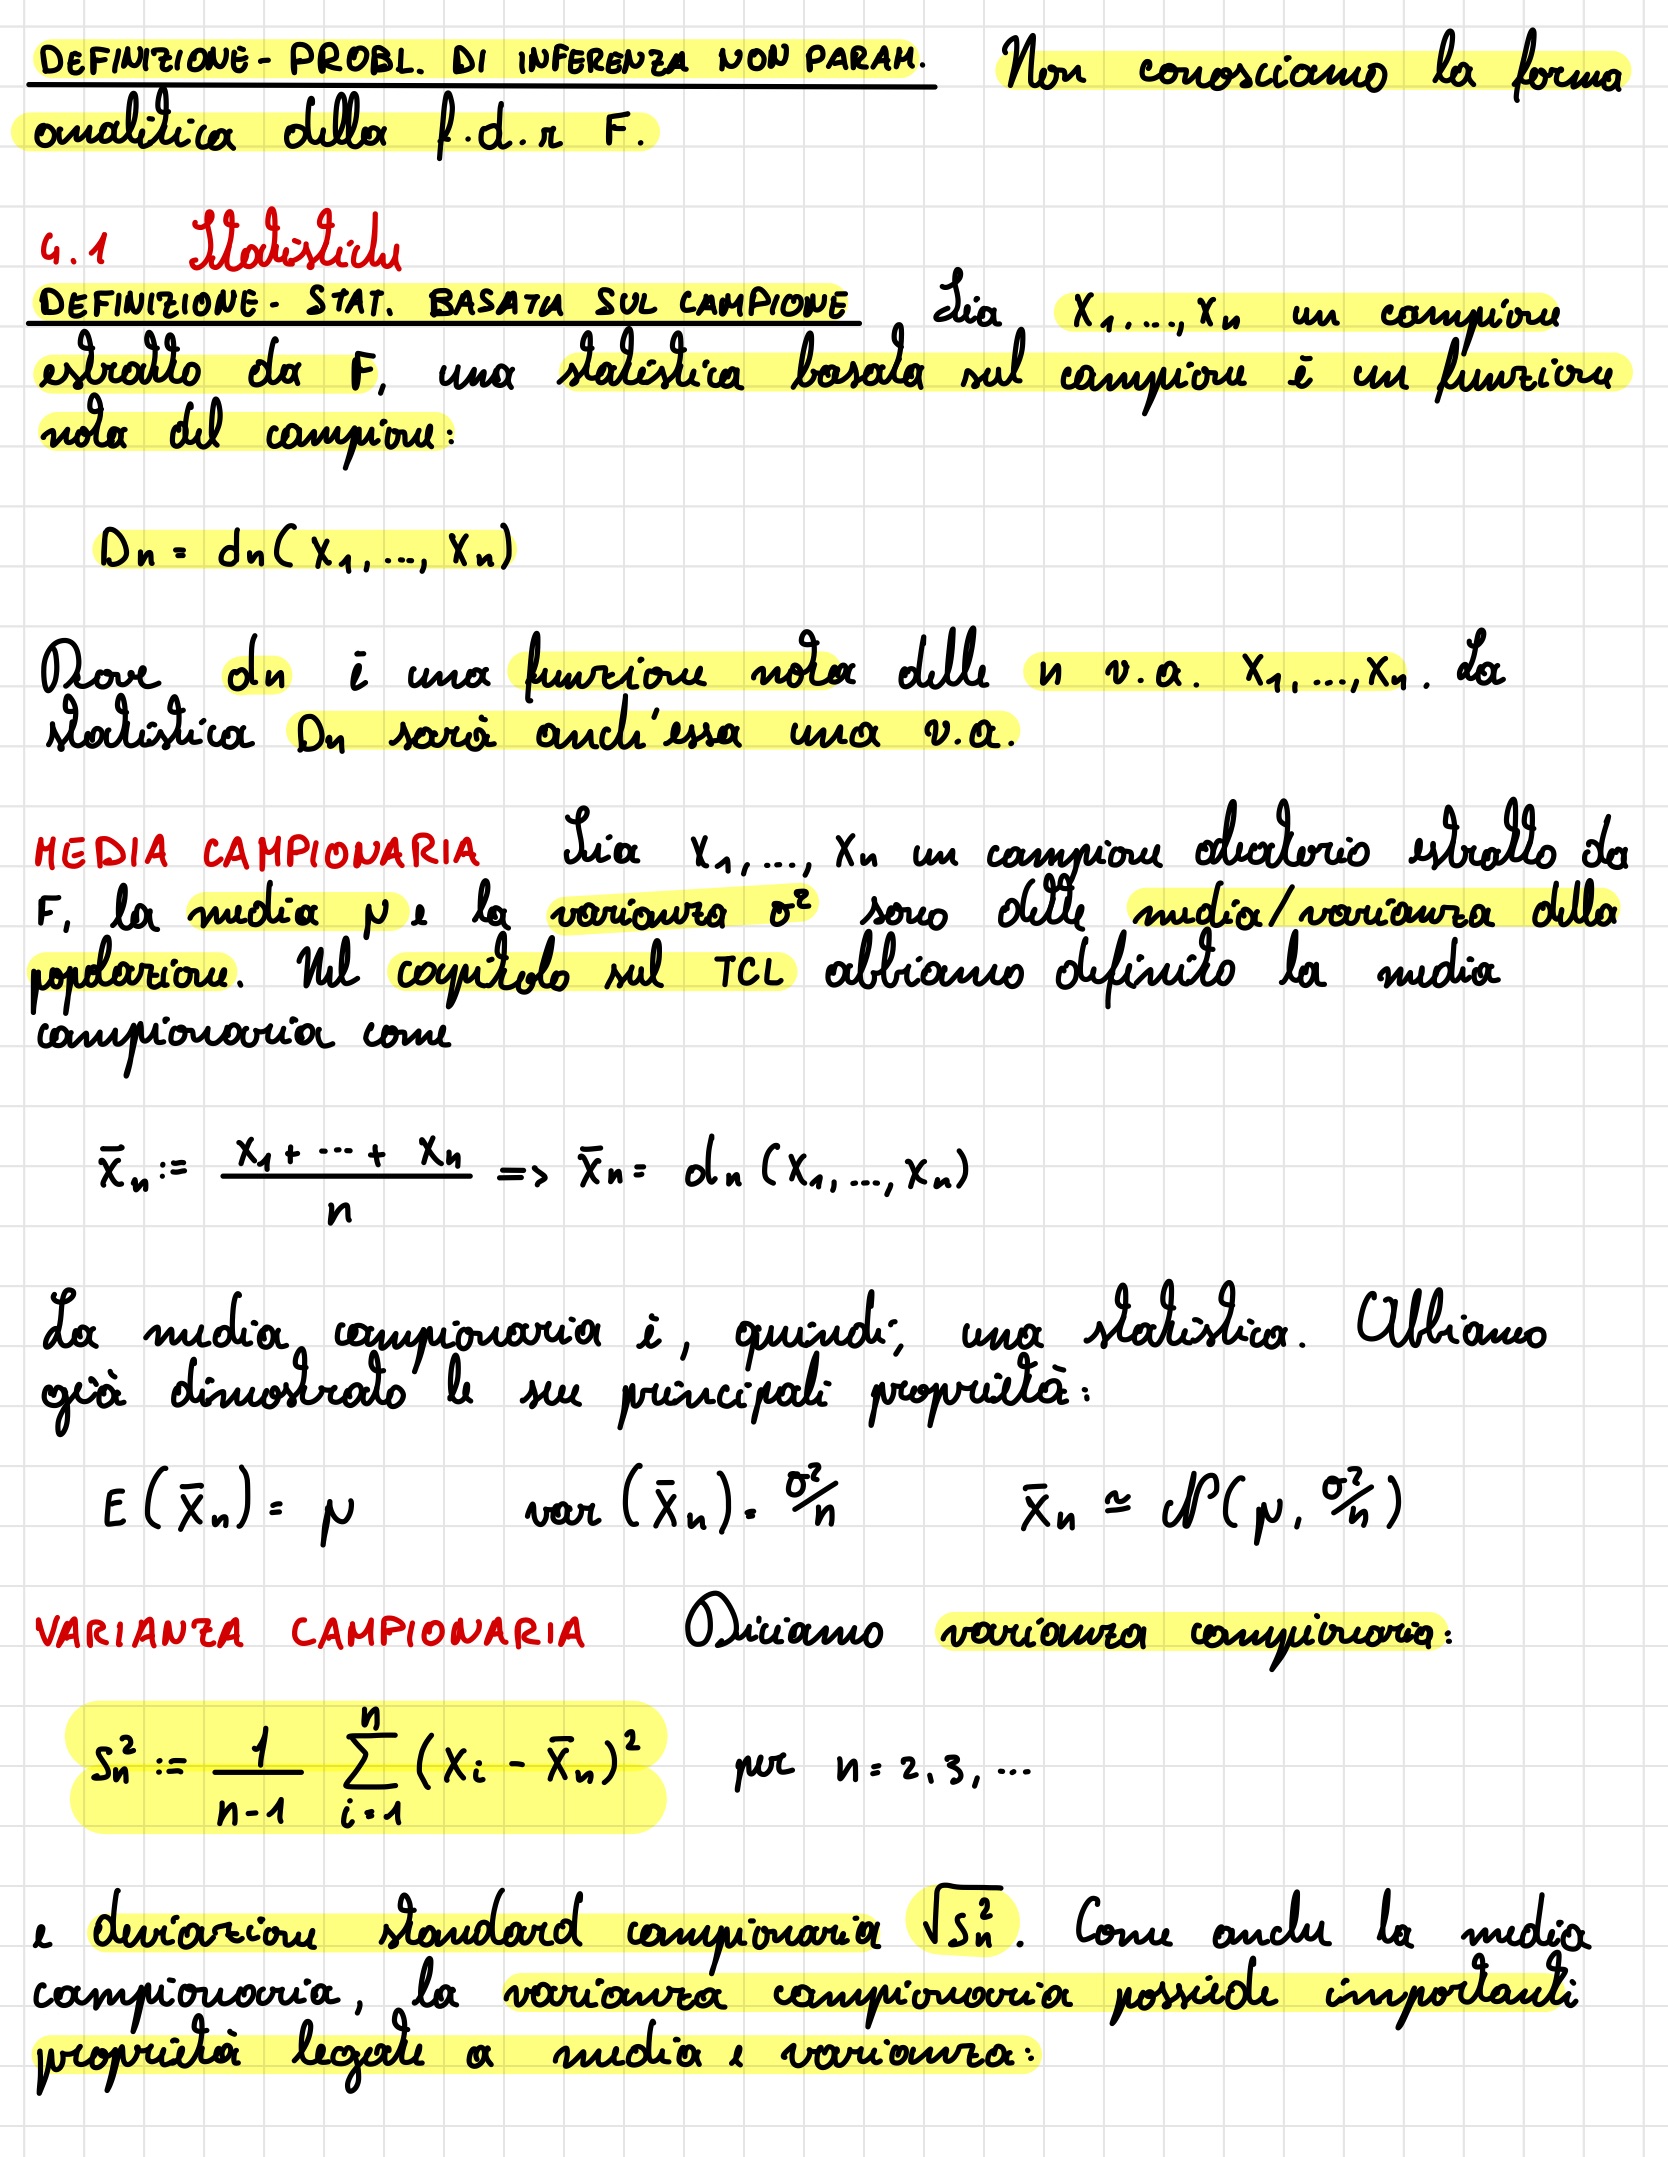 DEFINIZIONE - PROBL. DI INFERENZA NON PARAM. Non conosciamo la forma
analitica della f.d.r F.
4.1 Statistiche
DEFINIZIONE - STAT. BASATA SUL CAMPIONE Sia X₁,...,Xₙ un campione
estratto da F, una statistica basata sul campione è un funzione
nota del campione:
Dₙ = dₙ(X₁,...,Xₙ)
Dove dₙ è una funzione nota delle n v.a. X₁,...,Xₙ. La
statistica Dₙ sarà anch'essa una v.a.
MEDIA CAMPIONARIA Sia X₁,..., Xₙ un campione aleatorio estratto da
F, la media μ e la varianza σ² sono dette media/varianza della
popolazione. Nel capitolo sul TCL abbiamo definito la media
campionaria come
X̄ₙ := (X₁ + ... + Xₙ)/n => X̄ₙ = dₙ(X₁,...,Xₙ)
La media campionaria è, quindi, una statistica. Abbiamo
già dimostrato le sue principali proprietà:
E(X̄ₙ) = μ var(X̄ₙ) = σ²/n X̄ₙ ≃ N(μ, σ²/n)
VARIANZA CAMPIONARIA Diciamo varianza campionaria:
Sₙ² := 1/(n-1) ∑ᵢ₌₁ⁿ (Xᵢ - X̄ₙ)² per n = 2,3,...
e deviazione standard campionaria √Sₙ². Come anche la media
campionaria, la varianza campionaria possiede importanti
proprietà legate a media e varianza: